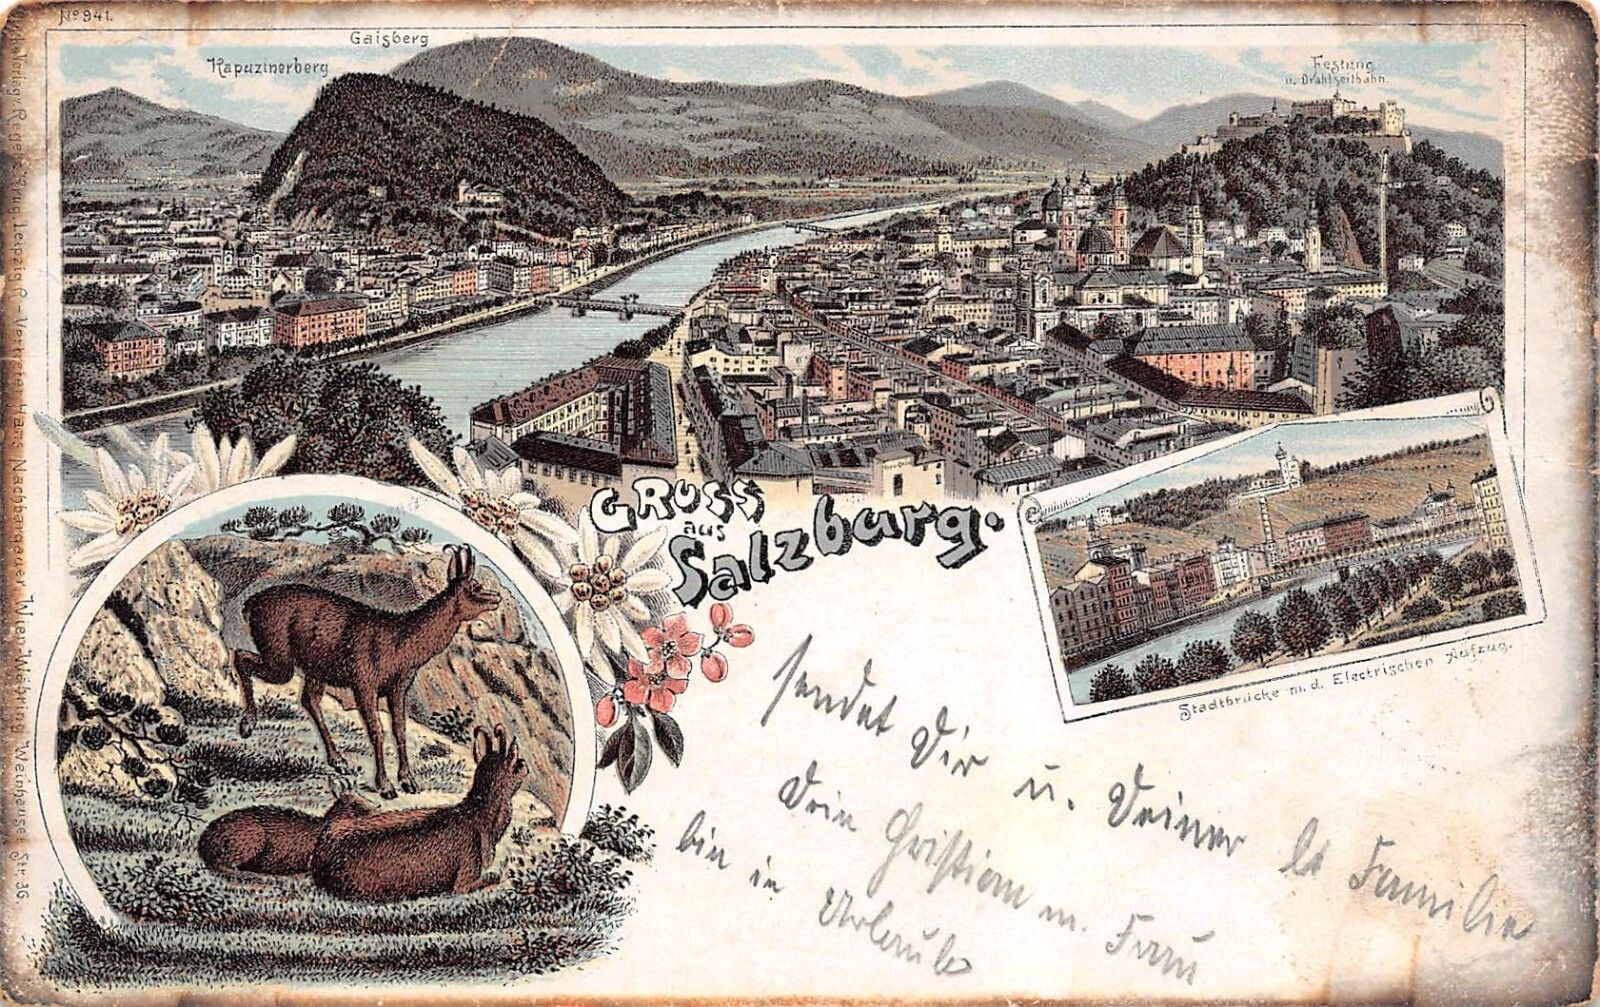 No 941.
Gaisberg
Kapuzinerberg
Festung
u. Drahtseilbahn.
Verlag: Regel & Krug, Leipzig R. Vertreter Hans Nachbargauer Wien-Währing Weinhauser Str. 36
GRUSS
aus
Salzburg.
Stadtbrücke m. d. Electrischen Aufzug.
sendet Dir u. Deiner lb Familie
Dein Christian m. Frau
bin in Urlaub